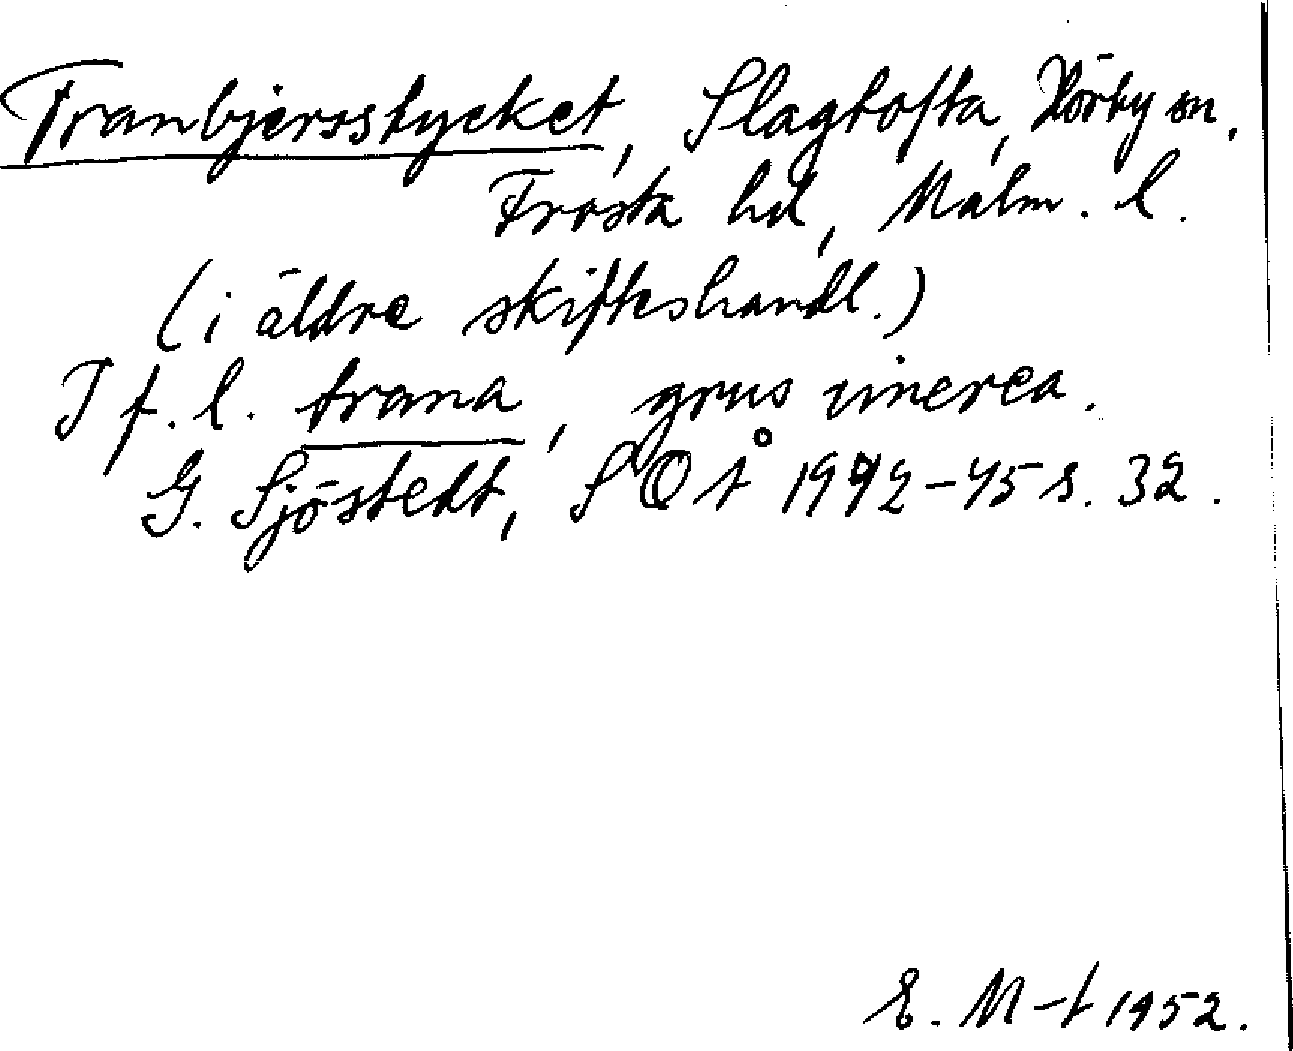 Tranbjersstycket, Slagtofta, Hörby sn.
Frosta hd, Malm. l.
(i äldre skifteshandl.)
I f. l. trana, grus cinerea.
G. Sjöstedt, SOÅ 1942-45 s. 32.
E. M-t 1952.